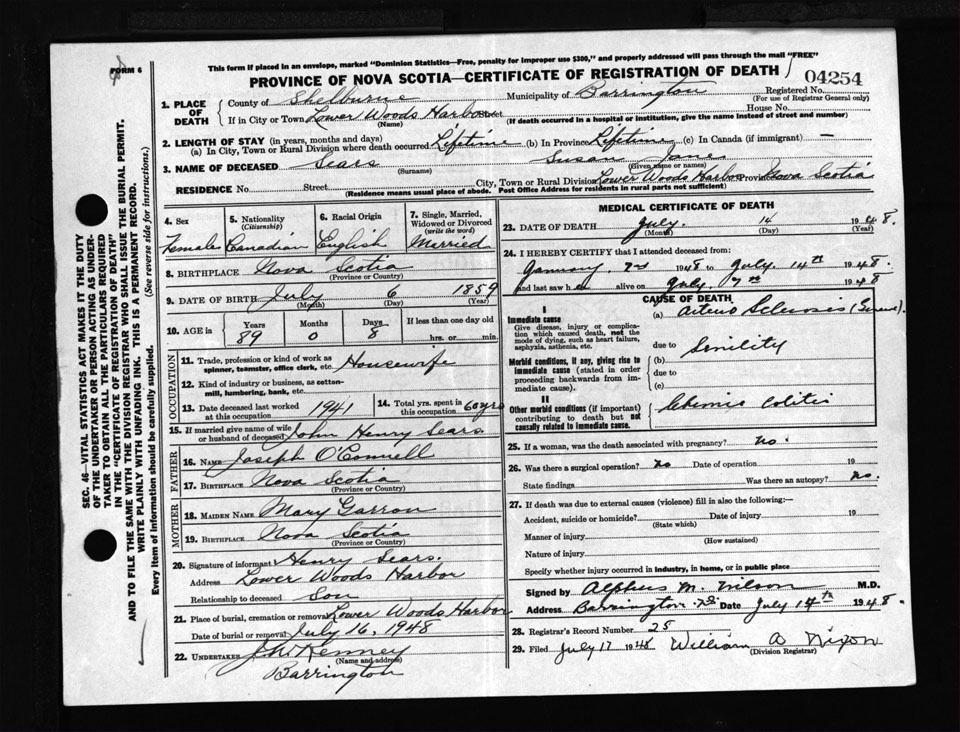 This form if placed in an envelope, marked "Dominion Statistics—Free, penalty for improper use $300," and properly addressed will pass through the mail "FREE"
FORM 6
PROVINCE OF NOVA SCOTIA—CERTIFICATE OF REGISTRATION OF DEATH
04254
1. PLACE OF DEATH
County of Shelburne
Municipality of Barrington
Registered No.
(For use of Registrar General only)
If in City or Town Lower Woods Harbor Street House No.
(Name) (If death occurred in a hospital or institution, give the name instead of street and number)
2. LENGTH OF STAY (in years, months and days)
(a) In City, Town or Rural Division where death occurred Lifetime (b) In Province Lifetime (c) In Canada (if immigrant) —
3. NAME OF DECEASED Sears Susan Jane
(Surname) (Given name or names)
RESIDENCE No. Street City, Town or Rural Division Lower Woods Harbor Province Nova Scotia
(Residence means usual place of abode. Post Office Address for residents in rural parts not sufficient)
4. Sex
Female
5. Nationality (Citizenship)
Canadian
6. Racial Origin
English
7. Single, Married, Widowed or Divorced (write the word)
Merried
8. BIRTHPLACE Nova Scotia
(Province or Country)
9. DATE OF BIRTH July 6 1859
(Month) (Day) (Year)
10. AGE in Years Months Days If less than one day old
89 0 8 hrs. or min.
OCCUPATION
11. Trade, profession or kind of work as spinner, teamster, office clerk, etc. Housewife
12. Kind of industry or business, as cotton-mill, lumbering, bank, etc.
13. Date deceased last worked at this occupation 1941
14. Total yrs. spent in this occupation 60 yrs
15. If married give name of wife or husband of deceased John Henry Sears
FATHER
16. NAME Joseph O'Connell
17. BIRTHPLACE Nova Scotia
(Province or Country)
MOTHER
18. MAIDEN NAME Mary Garron
19. BIRTHPLACE Nova Scotia
(Province or Country)
20. Signature of informant Henry Sears.
Address Lower Woods Harbor
Relationship to deceased Son
21. Place of burial, cremation or removal Lower Woods Harbor
Date of burial or removal July 16, 1948
22. UNDERTAKER Kenney
(Name and address)
Barrington
MEDICAL CERTIFICATE OF DEATH
23. DATE OF DEATH July 14 1948.
(Month) (Day) (Year)
24. I HEREBY CERTIFY that I attended deceased from:
January 7nd 1948 to July 14th 1948.
and last saw her alive on July 7th 1948
CAUSE OF DEATH
I
Immediate cause
Give disease, injury or complication which caused death, not the mode of dying, such as heart failure, asphyxia, asthenia, etc.
(a) Arterio Sclerosis
due to
Morbid conditions, if any, giving rise to immediate cause (stated in order proceeding backwards from immediate cause).
(b) Senility
due to
(c)
II
Other morbid conditions (if important) contributing to death but not causally related to immediate cause.
Chronic Colitis
25. If a woman, was the death associated with pregnancy? No.
26. Was there a surgical operation? No Date of operation 19
State findings Was there an autopsy? No.
27. If death was due to external causes (violence) fill in also the following:—
Accident, suicide or homicide? Date of injury 19
(State which)
Manner of injury
(How sustained)
Nature of injury
Specify whether injury occurred in industry, in home, or in public place
Signed by Alpheus M. Wilson M.D.
Address Barrington N.S. Date July 14th 1948.
28. Registrar's Record Number 25
29. Filed July 17 1948 William A Nixon
(Division Registrar)
SEC. 46—VITAL STATISTICS ACT MAKES IT THE DUTY
OF THE UNDERTAKER OR PERSON ACTING AS UNDER-
TAKER TO OBTAIN ALL THE PARTICULARS REQUIRED
IN THE "CERTIFICATE OF REGISTRATION OF DEATH"
AND TO FILE THE SAME WITH THE DIVISION REGISTRAR WHO SHALL ISSUE THE BURIAL PERMIT.
WRITE PLAINLY WITH UNFADING INK. THIS IS A PERMANENT RECORD.
Every item of information should be carefully supplied. (See reverse side for instructions.)